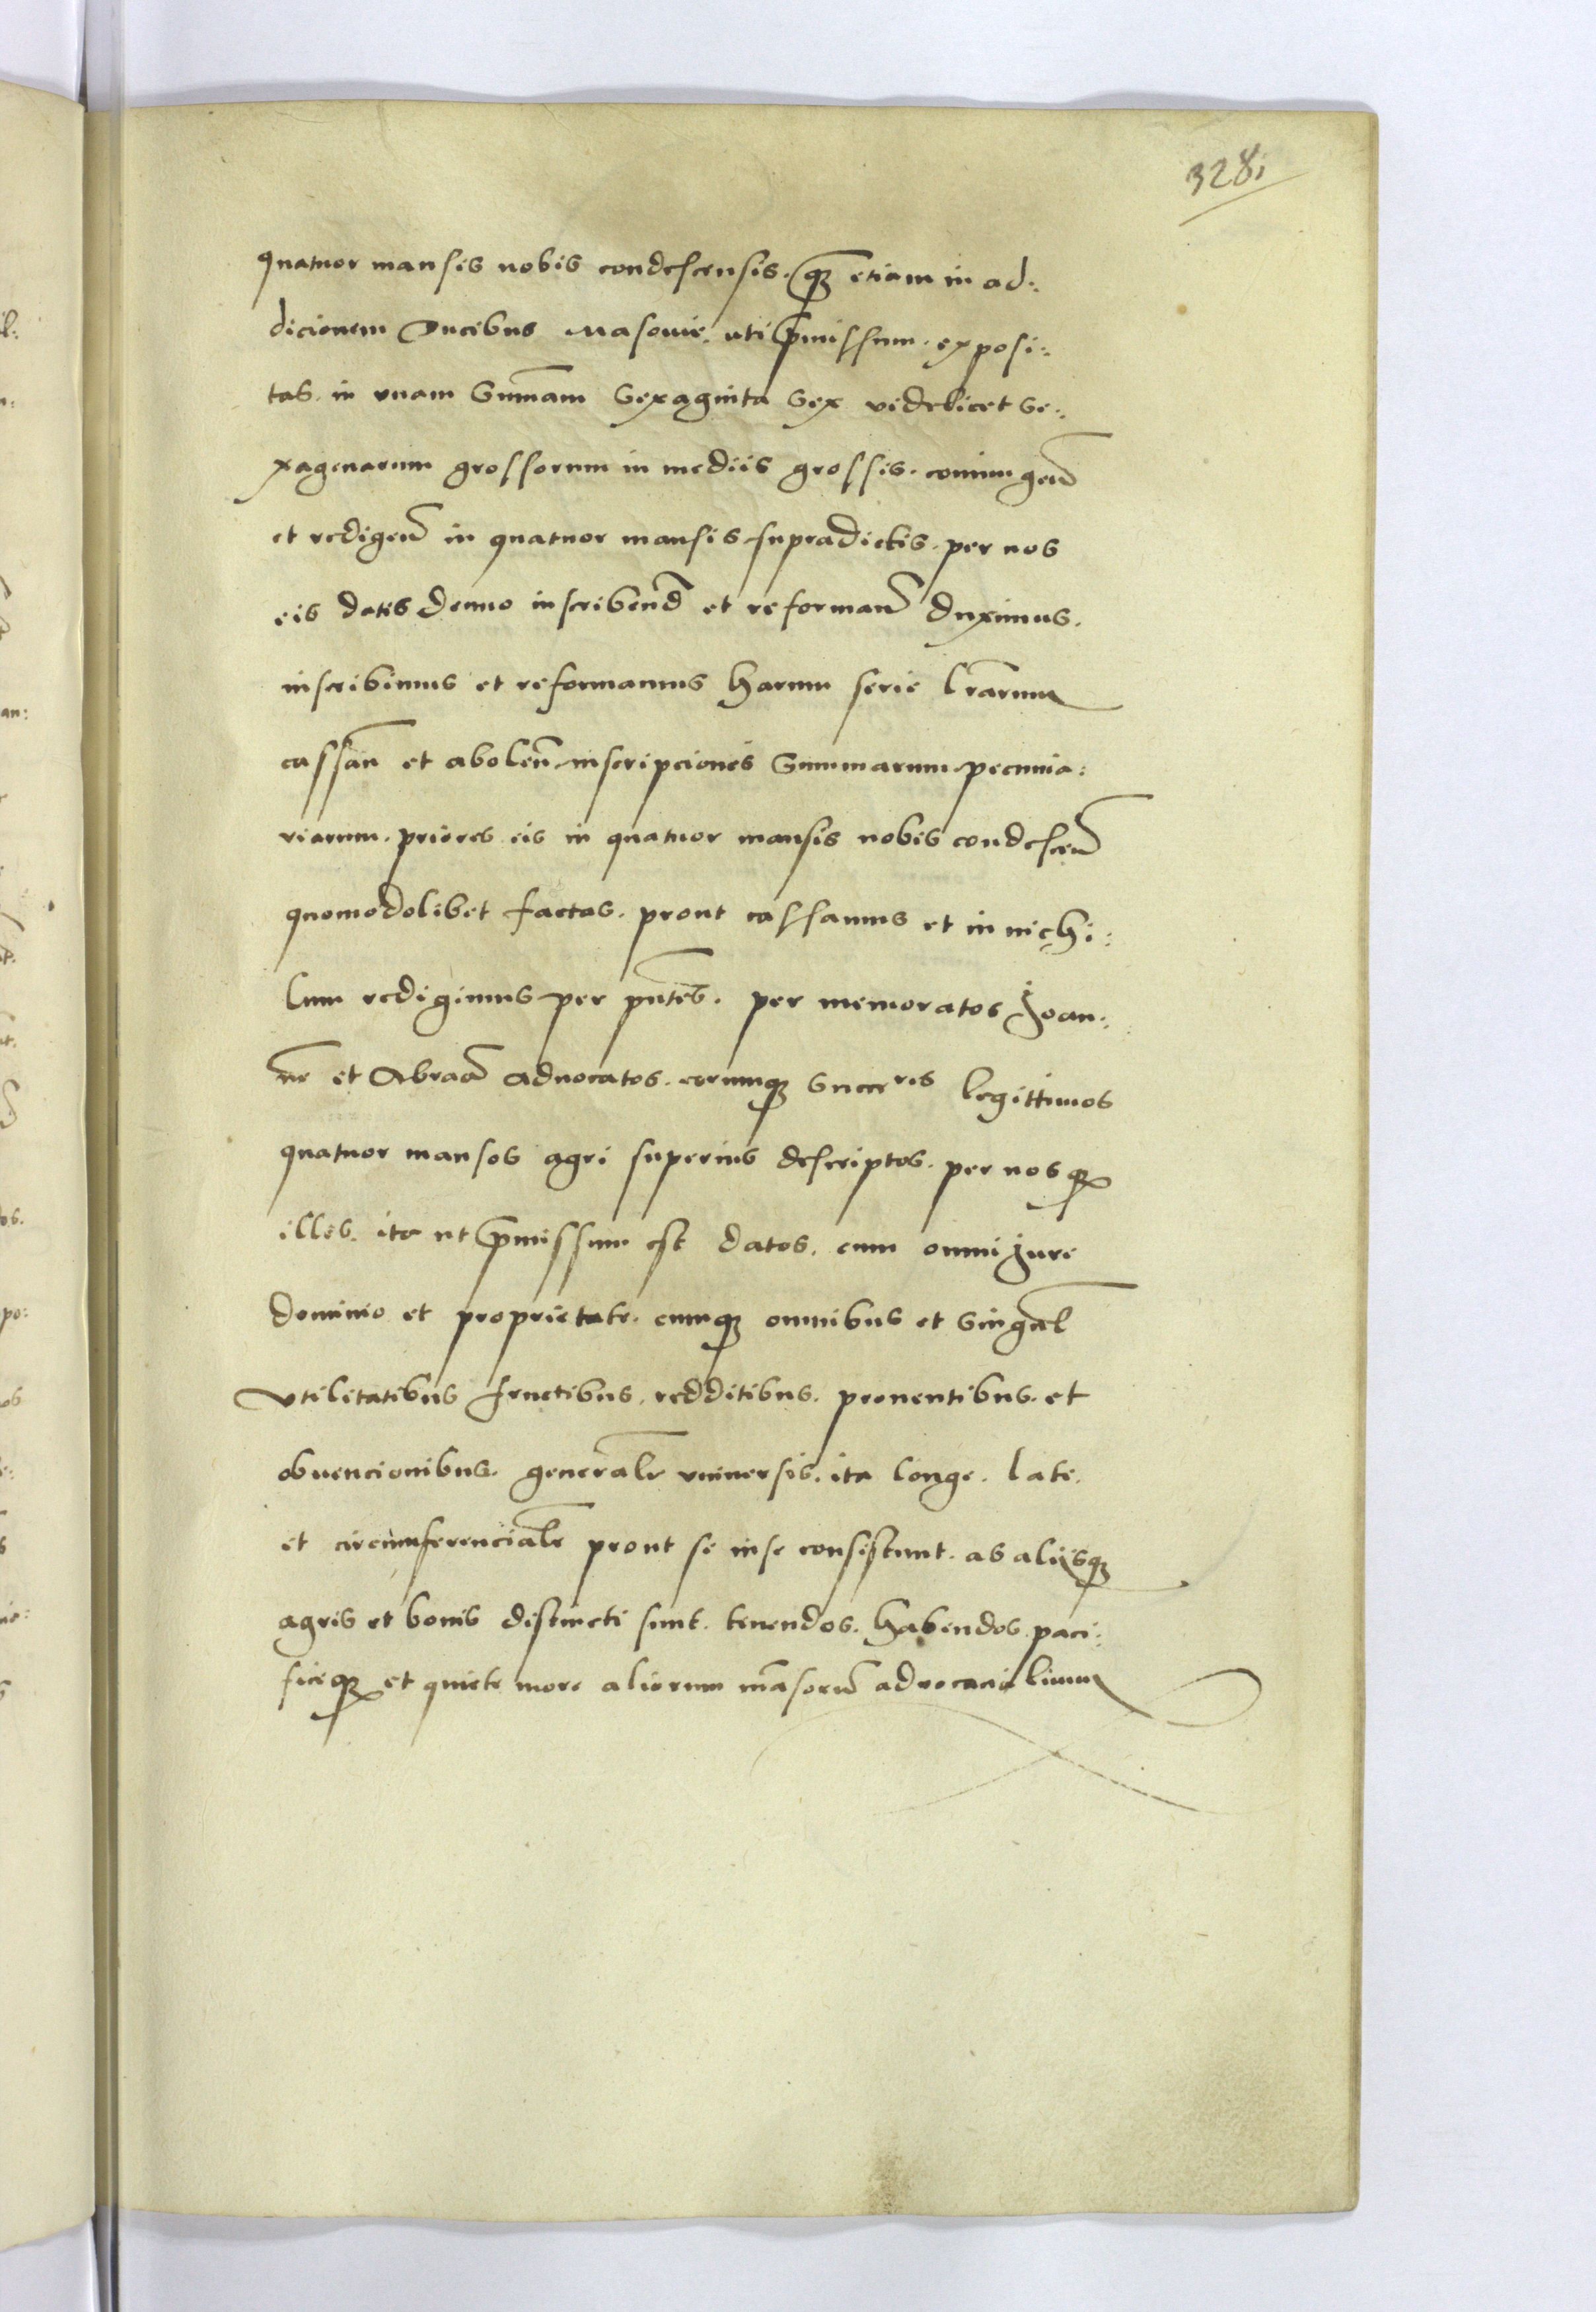 328
quatuor mansis nobis condescensis. q̃ȝ etiam in ad:
dicionem Ducibus Masouie. uti p̃missum. exposi:
tas. in vnam Sum̃am Sexaginta Sex videlicet Se:
xagenarum grossorum in mediis grossis. coniungeñ
et redigeñ in quatuor mansis supradictis. per nos
eis datis denuo inscribend̃ et reformañ duximus.
inscribimus et reformamus harum serie lr̃arum
cassañ et aboleñ inscripciones Summarum pecunia:
riarum. priores eis in quatuor mansis nobis condesceñ
quomodolibet factas. prout cassamus et in nichi:
lum redigimus per pñtes. per memoratos Joan:
nẽ et Abraã aduocatos. eorumqȝ Succeres legittimos
quatuor mansos agri superius descriptos. per nosqȝ
illis. ita ut p̃missum est datos. cum omni jure
dominio et proprietate. cumqȝ omnibus et Singul̃
vtilitatibus fructibus. redditibus. prouentibus. et
obuencionibus. generalr̃ vniuersis. ita longe. late.
et circumferencialr̃ prout si in se consistunt. ab aliisqȝ
agris et bonis distincti sunt. tenendos. habendos paci:
ficeqȝ et quiete more aliorum mãsorũ aduocacialium